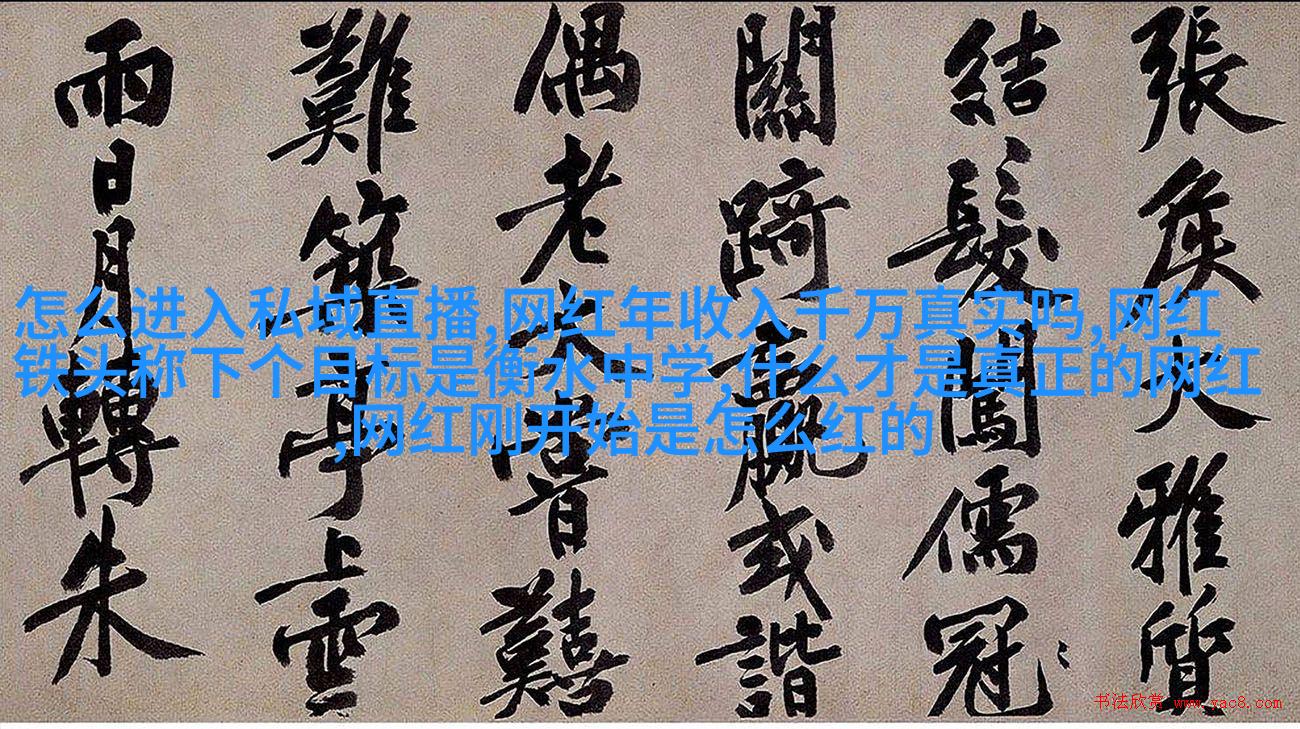 張矦大雅質
結髮闖儒冠
關踦贏或諧
偶老大嘗囏
難築亭上雲
雨日月轉朱
怎么进入私域直播,网红年收入千万真实吗,网红
铁头称下个目标是衡水中学,什么才是真正的网红
,网红刚开始是怎么红的
书法欣赏 www.yac8.com